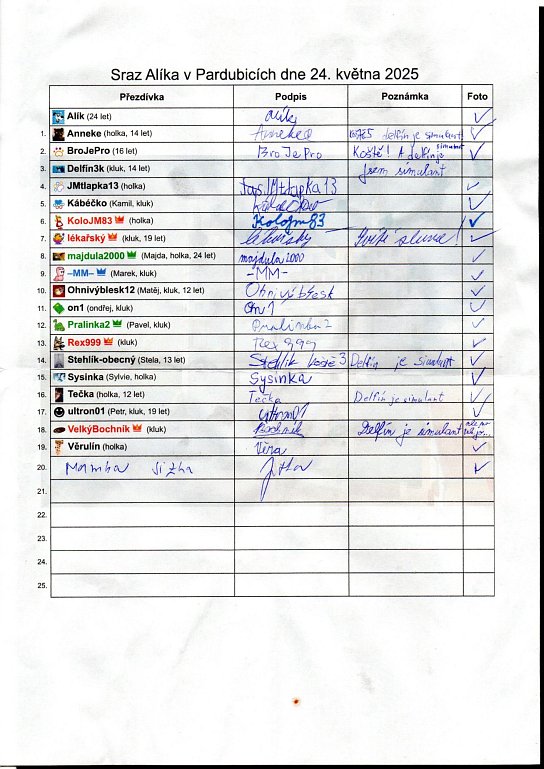 Sraz Alíka v Pardubicích dne 24. května 2025
Přezdívka Podpis Poznámka Foto
Alík (24 let) Alík
1. Anneke (holka, 14 let) Anneke delfín je simulant
2. BroJePro (16 let) BroJePro Koště! A delfín je simulant
3. Delfín3k (kluk, 14 let) jsem simulant
4. JMtlapka13 (holka) JMtlapka13
5. Kábéčko (Kamil, kluk)
6. KoloJM83 (holka) KoloJM83
7. lékařský (kluk, 19 let) lékařský Svítí slunce!
8. majdula2000 (Majda, holka, 24 let) majdula2000
9. –MM– (Marek, kluk) -MM-
10. Ohnivýblesk12 (Matěj, kluk, 12 let) Ohnivýblesk
11. on1 (ondřej, kluk) On1
12. Pralinka2 (Pavel, kluk) Pralinka2
13. Rex999 (kluk) Rex999
14. Stehlík-obecný (Stela, 13 let) Stehlík Koště 3 Delfín je simulant
15. Sysinka (Sylvie, holka) Sysinka
16. Tečka (holka, 12 let) Tečka Delfín je simulant
17. ultron01 (Petr, kluk, 19 let) ultron01
18. VelkýBochník (kluk) Bochník Delfín je simulant
19. Věrulín (holka) Věra
20. Mamba Jitka Jitka
21.
22.
23.
24.
25.